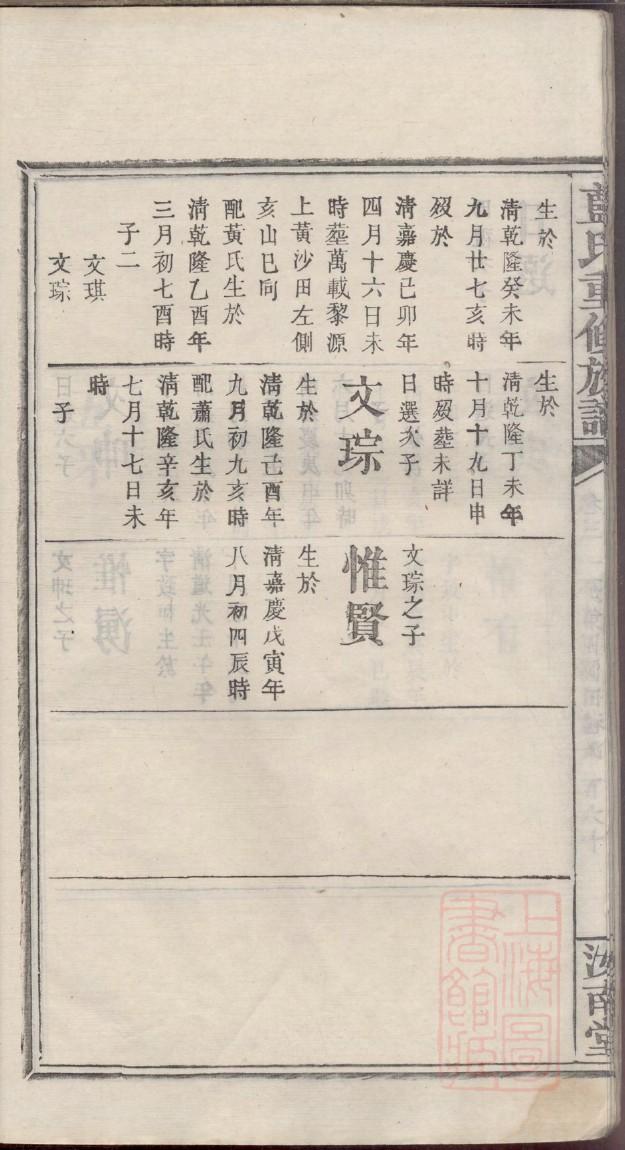 藍氏重修族譜
汝南堂
生於
清乾隆癸未年
九月廿七亥時
殁於
清嘉慶己卯年
四月十六日未
時塟萬載黎源
上黃沙田左側
亥山巳向
配黃氏生於
清乾隆乙酉年
三月初七酉時
子二
文琪
文琮
生於
清乾隆丁未年
十月十九日申
時殁塟未詳
日選次子
文琮
生於
清乾隆己酉年
九月初九亥時
配蕭氏生於
清乾隆辛亥年
七月十七日未
時
子
文琮之子
惟賢
生於
清嘉慶戊寅年
八月初四辰時
上海圖
書館藏